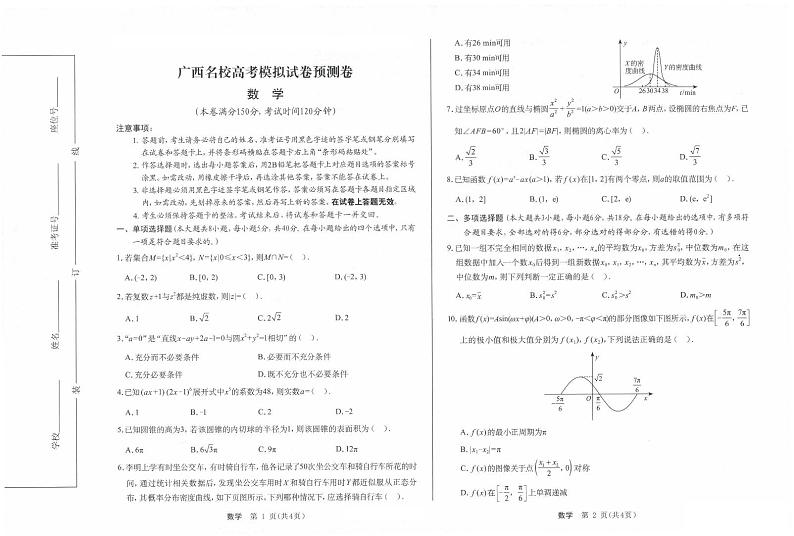 座位号
准考证号
姓名
学校
线
订
装
广西名校高考模拟试卷预测卷
数 学
(本卷满分150分,考试时间120分钟)
注意事项:
1. 答题前,考生请务必将自己的姓名、准考证号用黑色字迹的签字笔或钢笔分别填写
在试卷和答题卡上,并将条形码横贴在答题卡右上角“条形码粘贴处”。
2. 作答选择题时,选出每小题答案后,用2B铅笔把答题卡上对应题目选项的答案标号
涂黑。如需改动,用橡皮擦干净后,再选涂其他答案,答案不能答在试卷上。
3. 非选择题必须用黑色字迹签字笔或钢笔作答,答案必须写在答题卡各题目指定区域
内,如需改动,先划掉原来的答案,然后再写上新的答案。在试卷上答题无效。
4. 考生必须保持答题卡的整洁。考试结束后,将试卷和答题卡一并交回。
一、单项选择题(本大题共8小题,每小题5分,共40分。在每小题给出的四个选项中,只有
一项是符合题目要求的。)
1. 若集合M={x|x²<4},N={x|0≤x<3},则M∩N=( ).
A. (-2, 2) B. [0, 2) C. [0, 3) D. (-2, 3)
2. 若复数z+1与z²都是纯虚数,则|z|=( ).
A. 1 B. √2 C. 2√2 D. 2
3. “a=0”是“直线x-ay+2a-1=0与圆x²+y²=1相切”的( ).
A. 充分而不必要条件 B. 必要而不充分条件
C. 充分必要条件 D. 既不充分也不必要条件
4. 已知(ax+1)(2x-1)⁶展开式中x⁵的系数为48,则实数a=( ).
A. 1 B. -1 C. 2 D. -2
5. 已知圆锥的高为3,若该圆锥的内切球的半径为1,则该圆锥的表面积为( ).
A. 6π B. 6√3π C. 9π D. 12π
6. 李明上学有时坐公交车,有时骑自行车,他各记录了50次坐公交车和骑自行车所花的时
间,通过统计相关数据后,发现坐公交车用时X和骑自行车用时Y都近似服从正态分
布,其概率分布密度曲线,如下页图所示。下列哪种情况下,应选择骑自行车( ).
数学 第 1 页(共4页)
A. 有26 min可用
B. 有30 min可用
C. 有34 min可用
D. 有38 min可用
y
X的密
度曲线
Y的密度曲线
O 26 30 34 38 t/min
7. 过坐标原点O的直线与椭圆x²/a²+y²/b²=1(a>b>0)交于A,B两点,设椭圆的右焦点为F,已
知∠AFB=60°,且2|AF|=|BF|,则椭圆的离心率为( ).
A. √2/3 B. √3/3 C. √5/3 D. √7/3
8. 已知函数f(x)=aˣ-ax(a>1),若f(x)在[1, 2]有两个零点,则a的取值范围为( ).
A. (1, 2] B. (1, e) C. [2, e) D. (e, e²]
二、多项选择题(本大题共3小题,每小题6分,共18分。在每小题给出的选项中,有多项符
合题目要求,全部选对的得6分,部分选对的得部分分,有选错的得0分。)
9. 已知一组不完全相同的数据x₁,x₂,…,xₙ的平均数为x₀,方差为s₀²,中位数为m₀,在这
组数据中加入一个数x₀后得到一组新数据x₀,x₁,x₂,…,xₙ,其平均数为x̄,方差为s²,
中位数为m,则下列判断一定正确的是( ).
A. x₀=x̄ B. s₀²=s² C. s₀²>s² D. m₀>m
10. 函数f(x)=Asin(ωx+φ)(A>0,ω>0,-π<φ<π)的部分图像如下图所示,f(x)在[-5π/6, 7π/6]
上的极小值和极大值分别为f(x₁),f(x₂),下列说法正确的是( ).
y
√2
-5π/6 O π/6 7π/6 x
A. f(x)的最小正周期为π
B. |x₁-x₂|=π
C. f(x)的图像关于点((x₁+x₂)/2, 0)对称
D. f(x)在[-π/2, π/6]上单调递减
数学 第 2 页(共4页)